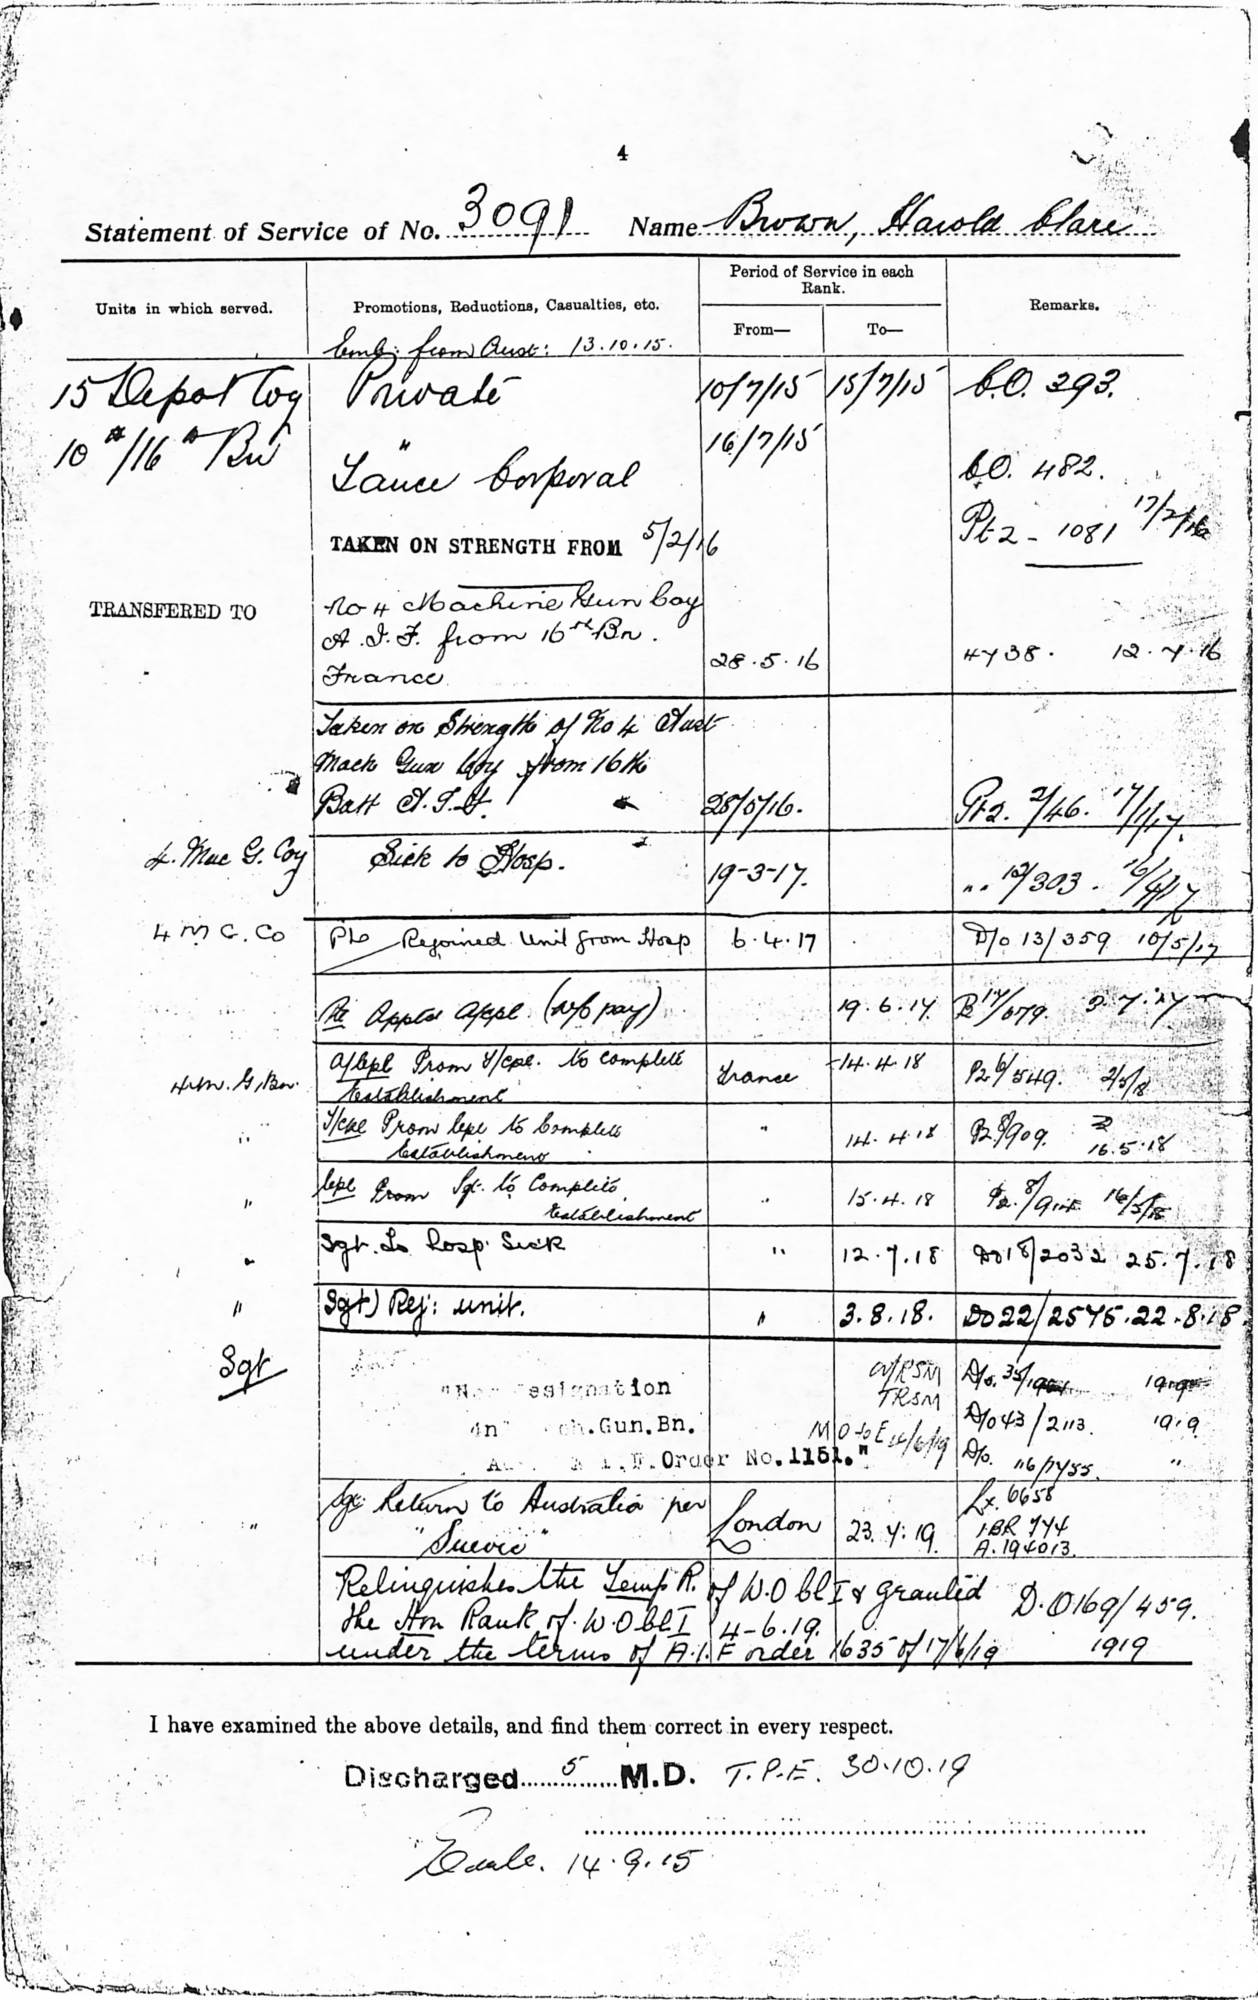 4
Statement of Service of No. 3091 Name Brown, Harold Clare
Units in which served.
Promotions, Reductions, Casualties, etc.
Period of Service in each Rank.
From—
To—
Remarks.
Emb: from Aust: 13.10.15.
15 Depot Coy Private 10/7/15 15/7/15 C.O. 293.
10th/16th Bn " 16/7/15
Lance Corporal C.O. 482.
TAKEN ON STRENGTH FROM 5/2/16 Pt 2 - 1081 17/2/16
TRANSFERED TO No 4 Machine Gun Coy
A.I.F. from 16th Bn.
France 28.5.16 4738. 12.7.16
Taken on Strength of No 4 Aust
Mach Gun Coy from 16th
Batt A.I.F. 28/5/16. Pt 2. 2/46. 17/1/17.
4. Mac G. Coy Sick to Hosp. 19-3-17. " " 12/303.
4 M G. Co Pte Rejoined Unit from Hosp 6.4.17 D/o 13/359 10/5/17
Pte Appld (w/o pay) 19.6.17.
4 M. G. Bn. Prom T/cpl. to complete
Establishment France 14.4.18 6/549. 2/5/18
" T/Cpl Prom Cpl to Complete
Establishment " 14.4.18 8/909. 16.5.18
" Cpl Prom Sgt. to Complete
Establishment " 15.4.18 16/5/18
" Sgt. To hosp. Sick " 12.7.18 DO 18/2032 25.7.18
" Sgt) Rej: unit. " 3.8.18. DO 22/2575. 22.8.18
Sgt
esignation
.Gun.Bn.
Order No. 1151."
TRSM
D/o 43/2113 1919
Sgt Return to Australia per
" "Suevic" London 23.7.19. 1BR 744
A.194013.
Relinquishes the Temp R. of W.O Cl I & granted
the Hon Rank of W.O Cl I 4-6.19. D.O 169/459.
under the terms of A.I.F order 1635 of 17/6/19 1919
I have examined the above details, and find them correct in every respect.
Discharged 5 M.D. T.P.E. 30.10.19
14.9.15